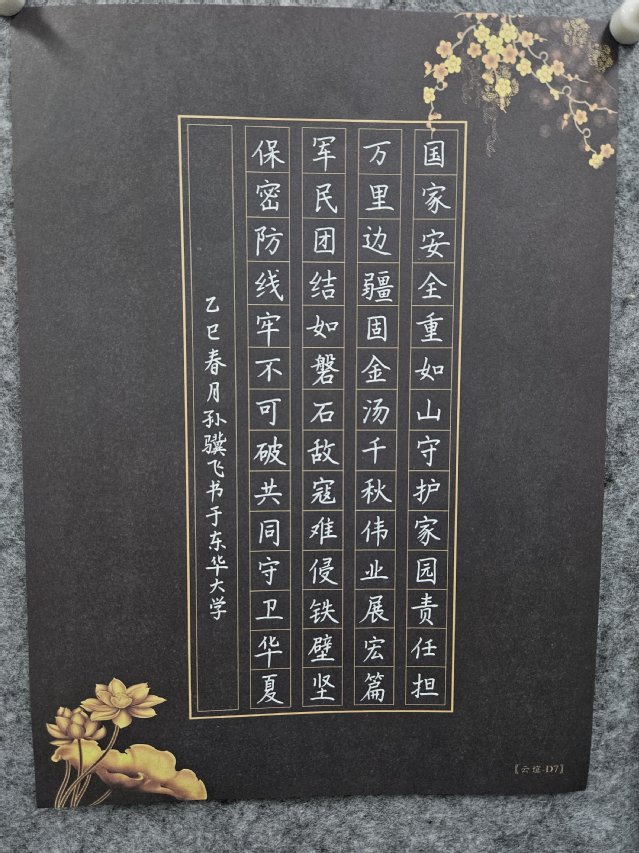 国家安全重如山守护家园责任担
万里边疆固金汤千秋伟业展宏篇
军民团结如磐石敌寇难侵铁壁坚
保密防线牢不可破共同守卫华夏
乙巳春月孙骥飞书于东华大学
〖云笺-D7〗